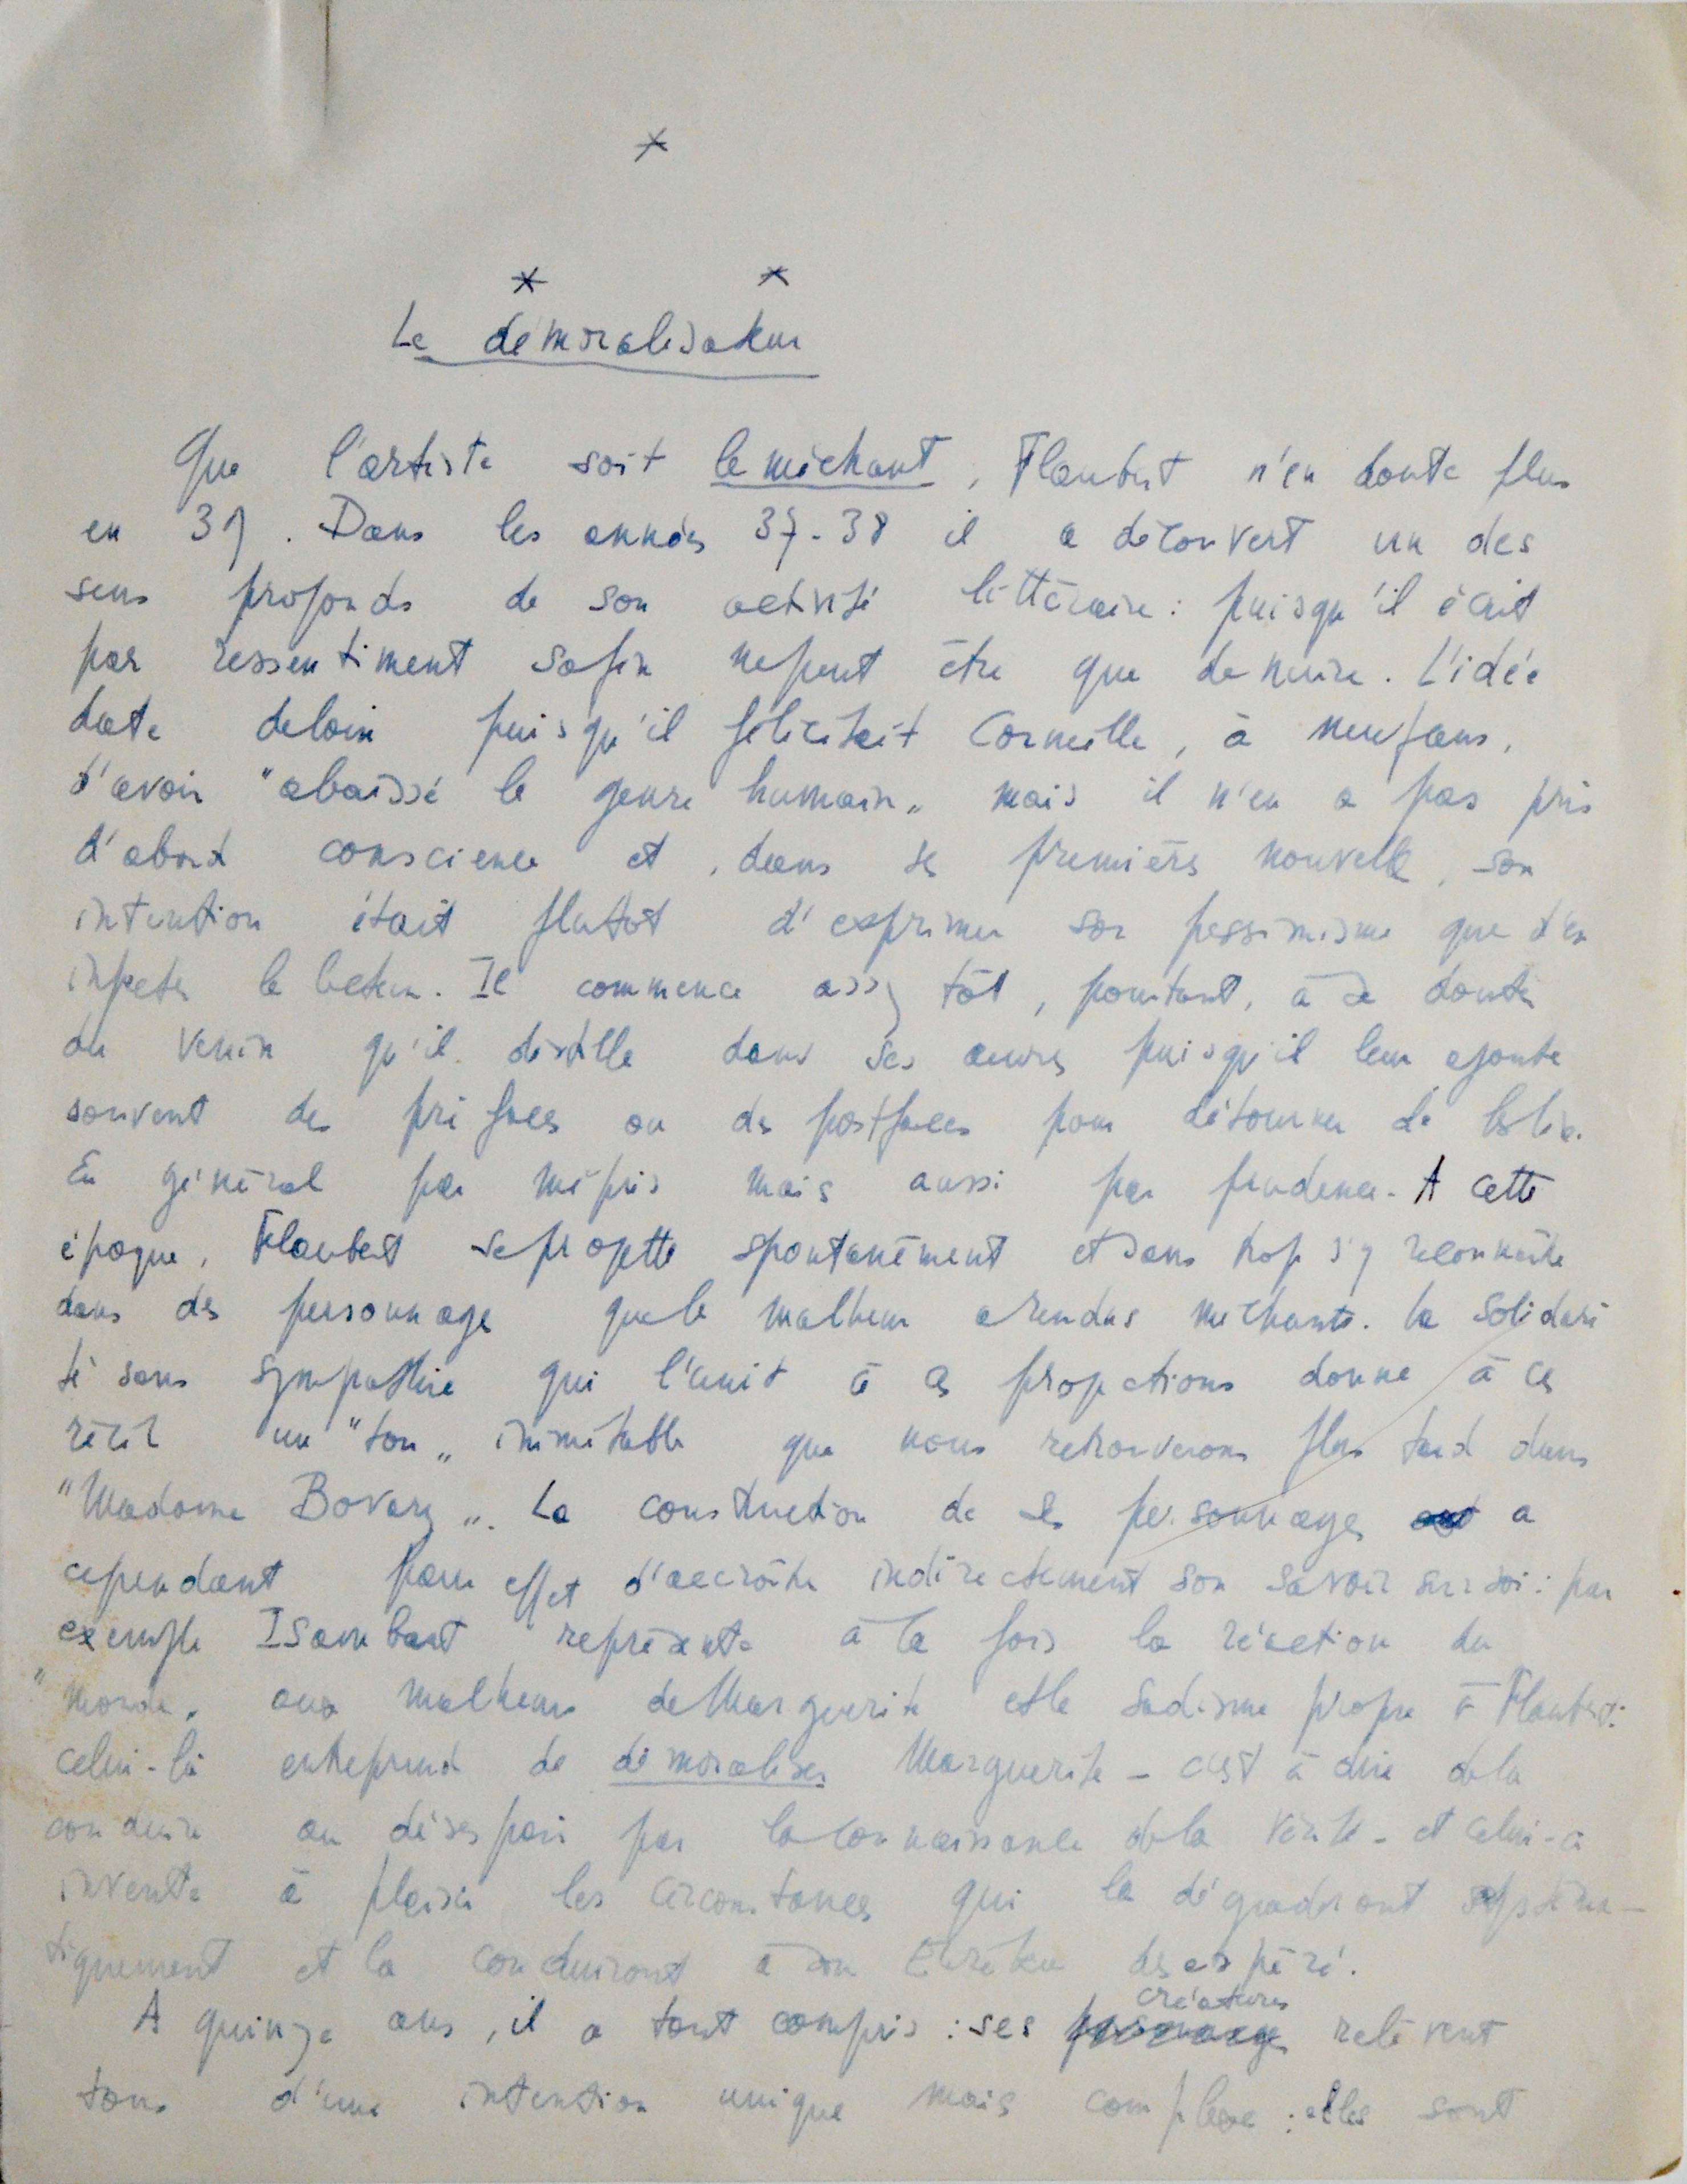 *
* *
Le démoralisateur
Que l'artiste soit le méchant, Flaubert n'en doute plus
en 39. Dans les années 37-38 il a découvert un des
sens profonds de son activité littéraire : puisqu'il écrit
par ressentiment sa fin ne peut être que de nuire. L'idée
date de loin puisqu'il félicitait Corneille, à neuf ans,
d'avoir "abaissé le genre humain" mais il n'en a pas pris
d'abord conscience et, dans ses premières nouvelles, son
intention était plutôt d'exprimer son pessimisme que d'en
infecter le lecteur. Il commence assez tôt, pourtant, à se douter
du venin qu'il distille dans ses œuvres puisqu'il leur ajoute
souvent des préfaces ou des postfaces pour détourner de les lire.
En général par mépris mais aussi par prudence. A cette
époque, Flaubert se projette spontanément et sans trop s'y reconnaître
dans des personnages que le malheur a rendus méchants. La solidari
té sans sympathie qui l'unit à ces projections donne à ces
récits un "ton" inimitable que nous retrouverons plus tard dans
"Madame Bovary". La construction de ses personnages a
cependant pour effet d'accroître indirectement son savoir sur soi : par
exemple Isambart représente à la fois la réaction du
"monde" aux malheurs de Marguerite et le sadisme propre à Flaubert :
celui-là entreprend de démoraliser Marguerite - c'est à dire de la
conduire au désespoir par la connaissance de la vérité - et celui-ci
invente à plaisir les circonstances qui la dégraderont systéma-
tiquement et la conduiront à son Eurêka désespéré.
A quinze ans, il a tout compris : ses personnages créatures relèvent
tous d'une intention unique mais complexe : elles sont